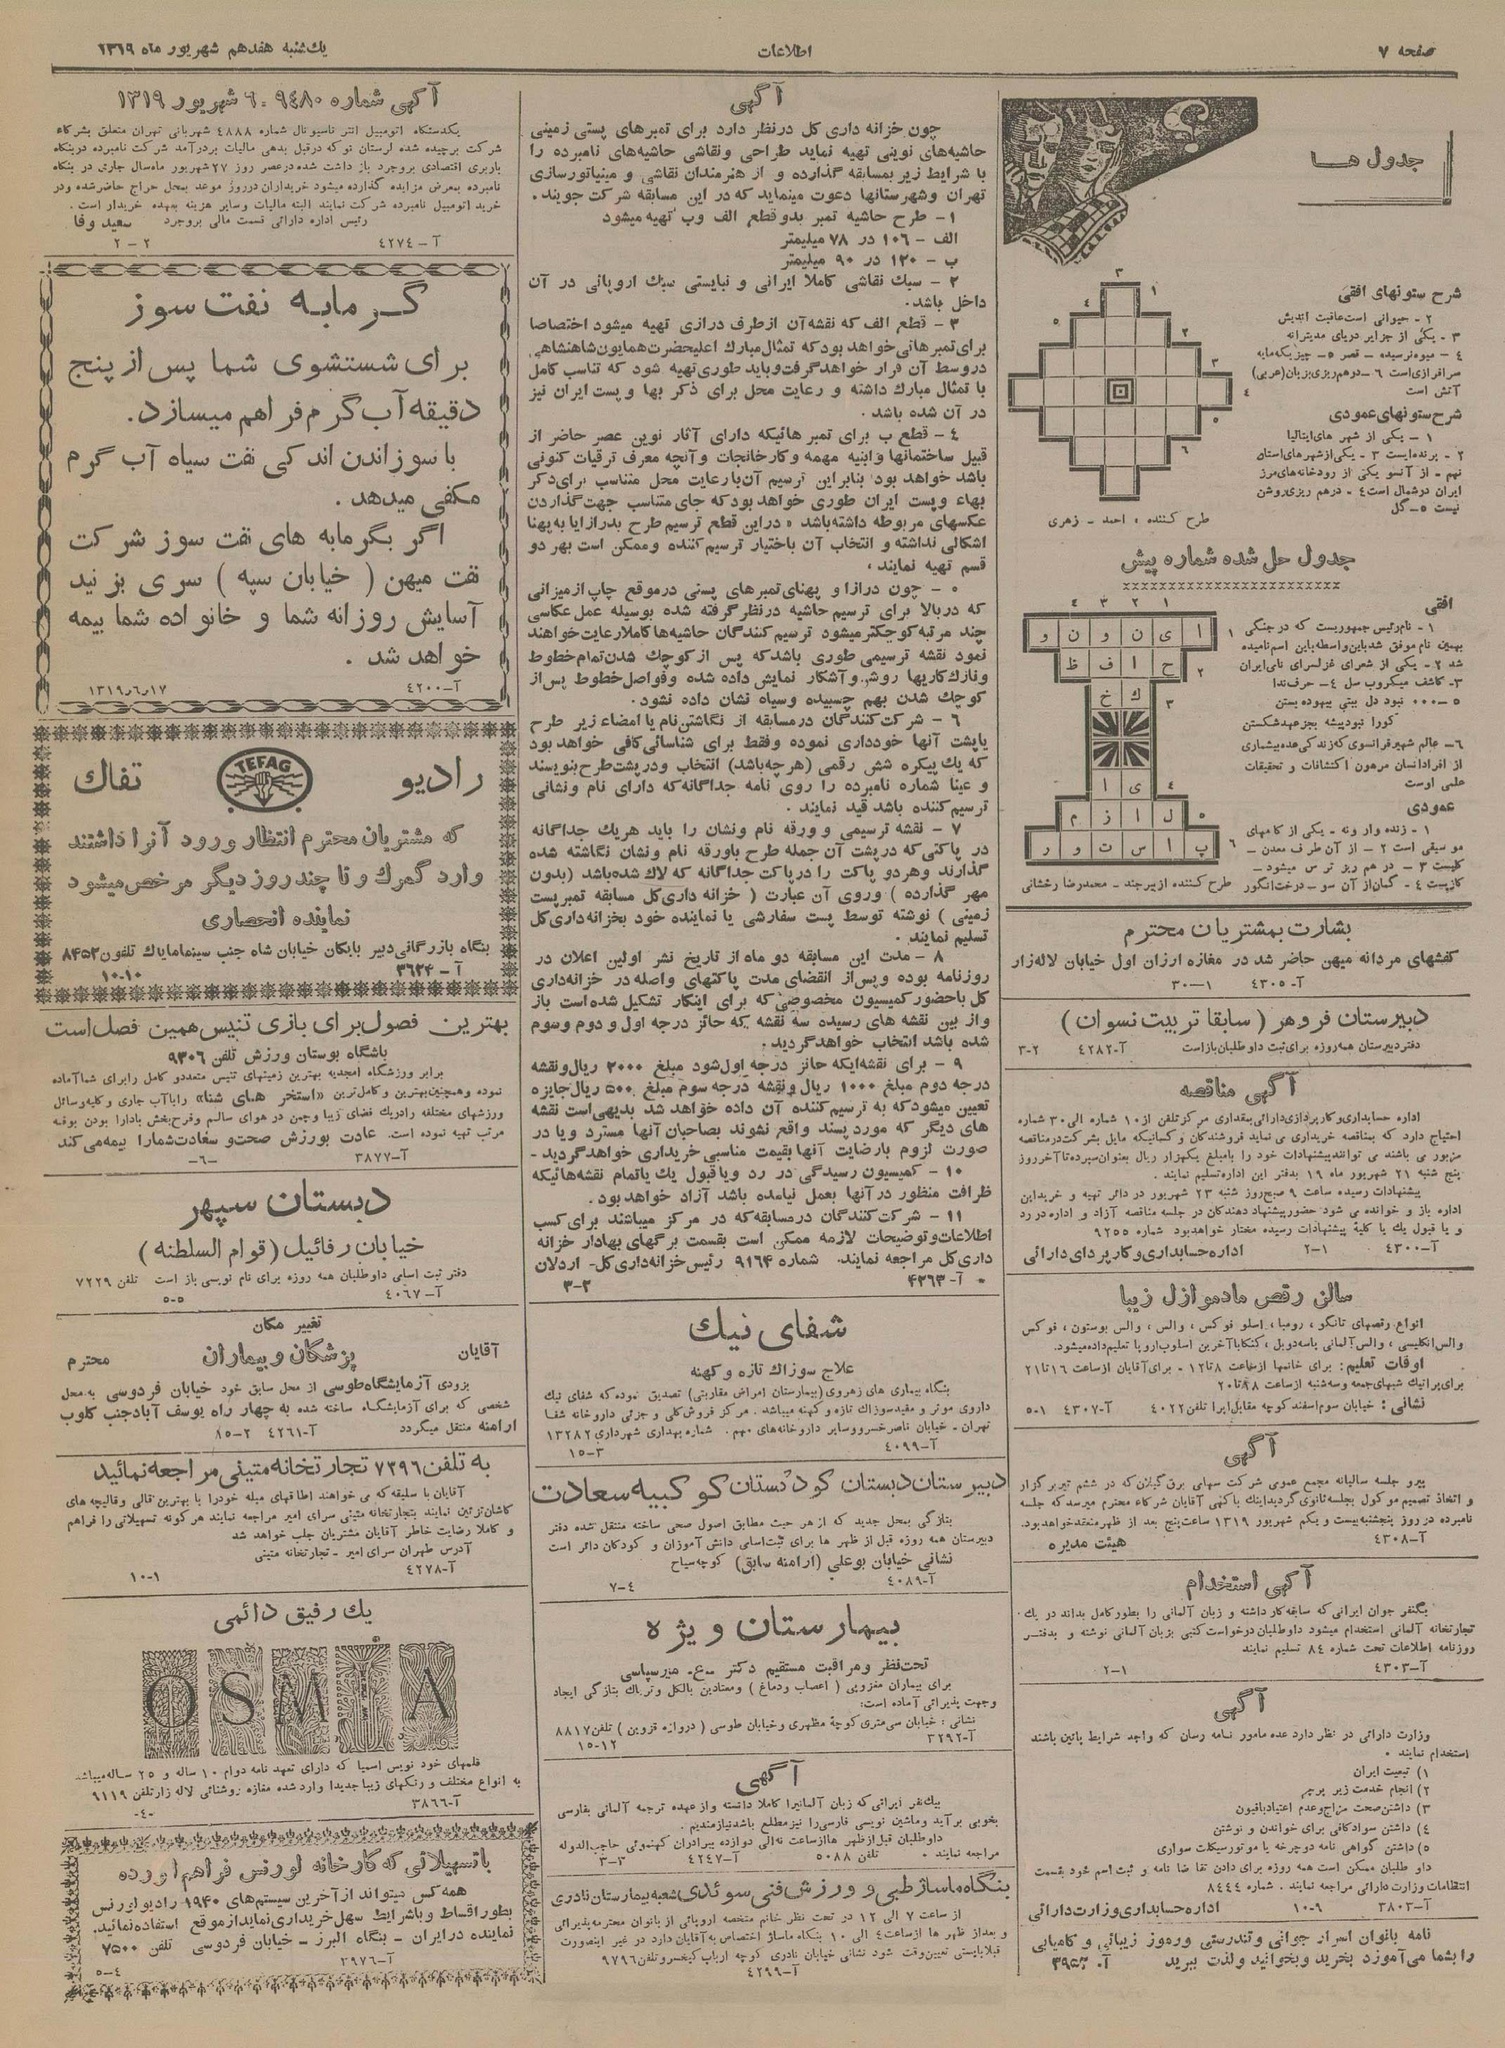 صفحه ۷
اطلاعات
یک‌شنبه هفدهم شهریور ماه ۱۳۱۹
جدول ها
شرح ستونهای افقی
۲ - حیوانی است عاقبت اندیش
۳ - یکی از جزایر دریای مدیترانه
۴ - میوه نرسیده - قصر ۵ - چیزیکه مایه
سرافرازی است ۶ - دوهم ریزی بزبان (عربی)
آتش است
شرح ستونهای عمودی
۱ - یکی از شهر های ایتالیا
۲ - برنده ایست ۳ - یکی از شهرهای استان
نهم - از آنسو یکی از رودخانه‌های مرز
ایران در شمال است ۴ - درهم ریزی روشن
نیست ۵ - گل
طرح کننده : احمد - زهری
جدول حل شده شماره پیش
افقی
۱ - نام رئیس جمهوریست که در جنگی
بهمین نام موفق شد باین واسطه باین اسم نامیده
شد ۲ - یکی از شعرای غزلسرای نامی ایران
۳ - کاشف میکروب سل ۴ - حرف ندا
۵ - ۰۰۰ نبود دل بیتی بیهوده بستن
کورا نبود پیشه بجز عهد شکستن
۶ - عالم شهیر فرانسوی که زندگی عده بیشماری
از افراد انسان مرهون اکتشافات و تحقیقات
علمی اوست
عمودی
۱ - زنده وارونه - یکی از گامهای
موسیقی است ۲ - از آن طرف معدن -
کلیست ۳ - درهم ریز ترس میشود -
کازیست ۴ - گمان از آن سو - درخت انگور
طرح کننده از بیرجند - محمدرضا رخشانی
بشارت بمشتریان محترم
کفشهای مردانه میهن حاضر شد در مغازه ارزان اول خیابان لاله‌زار
آ - ۴۳۰۵ ۱ - ۳۰
دبیرستان فروهر ( سابقا تربیت نسوان )
دفتر دبیرستان همه روزه برای ثبت داوطلبان باز است آ - ۴۲۸۲ ۲ - ۳
آگهی مناقصه
اداره حسابداری و کارپردازی دارائی بمقداری مرکز تلفن از ۱۰ شماره الی ۳۰ شماره
احتیاج دارد که بمناقصه خریداری می نماید فروشندگان و کسانیکه مایل بشرکت در مناقصه
مزبور می باشند می توانند پیشنهادات خود را با مبلغ یکهزار ریال بعنوان سپرده تا آخر روز
پنج شنبه ۲۱ شهریور ماه ۱۹ بدفتر این اداره تسلیم نمایند .
پیشنهادات رسیده ساعت ۹ صبح روز شنبه ۲۳ شهریور در دائر تهیه و خرید این
اداره باز و خوانده می شود حضور پیشنهاد دهندگان در جلسه مناقصه آزاد و اداره در رد
و یا قبول یک یا کلیه پیشنهادات رسیده مختار خواهد بود شماره ۹۲۵۵
آ - ۴۳۰۰ ۱ - ۲ اداره حسابداری و کارپردازی دارائی
سالن رقص مادموازل زیبا
انواع رقصهای تانگو ، رومبا ، اسلو فوکس ، والس ، والس بوستون ، فوکس
والس انگلیسی ، والس آلمانی باسه دوبل ، کنکا با آخرین اسلوب اروپا تعلیم داده میشود.
اوقات تعلیم: برای خانمها از ساعت ۸ تا ۱۲ - برای آقایان از ساعت ۱۶ تا ۲۱
برای پراتیک شبهای جمعه و سه شنبه از ساعت ۱۸ تا ۲۰
نشانی : خیابان سوم اسفند کوچه مقابل ایرا تلفن ۴۰۲۲ آ - ۴۳۰۷ ۱ - ۵
آگهی
پیرو جلسه سالیانه مجمع عمومی شرکت سهامی برق گیلان که در ششم تیر برگزار
و اتخاذ تصمیم موکول بجلسه ثانوی گردید اینک با گهی آقایان شرکاء محترم میرسد که جلسه
نامبرده در روز پنجشنبه بیست و یکم شهریور ۱۳۱۹ ساعت پنج بعد از ظهر منعقد خواهد بود.
آ - ۴۳۰۸ هیئت مدیره
آگهی استخدام
یکنفر جوان ایرانی که سابقه کار داشته و زبان آلمانی را بطور کامل بداند در یک
تجارتخانه آلمانی استخدام میشود داوطلبان درخواست کتبی بزبان آلمانی نوشته و بدفتر
روزنامه اطلاعات تحت شماره ۸۴ تسلیم نمایند
آ - ۴۳۰۳ ۱ - ۲
آگهی
وزارت دارائی در نظر دارد عده مامور نامه رسان که واجد شرایط پائین باشند
استخدام نمایند .
۱) تبعیت ایران
۲) انجام خدمت زیر پرچم
۳) داشتن صحت مزاج و عدم اعتیاد بافیون
۴) داشتن سواد کافی برای خواندن و نوشتن
۵) داشتن گواهی نامه دوچرخه یا موتورسیکلت سواری
داو طلبان ممکن است همه روزه برای دادن تقاضا نامه و ثبت اسم خود بقسمت
انتظامات وزارت دارائی مراجعه نمایند . شماره ۸۴۴۴
آ - ۳۸۰۳ ۹ - ۱۰ اداره حسابداری وزارت دارائی
نامه بانوان اسرار جوانی و تندرستی و رموز زیبائی و کامیابی
را بشما می‌آموزد بخرید و بخوانید و لذت ببرید آ - ۳۹۵۳
آگهی
چون خزانه داری کل در نظر دارد برای تمبرهای پستی زمینی
حاشیه‌های نوینی تهیه نماید طراحی و نقاشی حاشیه‌های نامبرده را
با شرایط زیر بمسابقه گذارده و از هنرمندان نقاشی و مینیاتورسازی
تهران و شهرستانها دعوت مینماید که در این مسابقه شرکت جویند .
۱ - طرح حاشیه تمبر بدو قطع الف و ب تهیه میشود
الف - ۱۰۶ در ۷۸ میلیمتر
ب - ۱۲۰ در ۹۰ میلیمتر
۲ - سبک نقاشی کاملا ایرانی و نبایستی سبک اروپائی در آن
داخل باشد.
۳ - قطع الف که نقشه آن از طرف درازی تهیه میشود اختصاصا
برای تمبرهائی خواهد بود که تمثال مبارک اعلیحضرت همایون شاهنشاهی
در وسط آن قرار خواهد گرفت و باید طوری تهیه شود که تناسب کامل
با تمثال مبارک داشته و رعایت محل برای ذکر بها و پست ایران نیز
در آن شده باشد .
۴ - قطع ب برای تمبر هائیکه دارای آثار نوین عصر حاضر از
قبیل ساختمانها و ابنیه مهمه و کارخانجات و آنچه معرف ترقیات کنونی
باشد خواهد بود بنابراین ترسیم آن با رعایت محل متناسب برای ذکر
بهاء و پست ایران طوری خواهد بود که جای متناسب جهت گذاردن
عکسهای مربوطه داشته باشد ، در این قطع ترسیم طرح بدرازا یا به پهنا
اشکالی نداشته و انتخاب آن باختیار ترسیم کننده و ممکن است بهر دو
قسم تهیه نمایند .
۵ - چون درازا و پهنای تمبرهای پستی در موقع چاپ از میزانی
که در بالا برای ترسیم حاشیه در نظر گرفته شده بوسیله عمل عکاسی
چند مرتبه کوچکتر میشود ترسیم کنندگان حاشیه‌ها کاملا رعایت خواهند
نمود نقشه ترسیمی طوری باشد که پس از کوچک شدن تمام خطوط
و نازک کاریها روشن و آشکار نمایش داده شده و فواصل خطوط پس از
کوچک شدن بهم چسبیده و سیاه نشان داده نشود.
۶ - شرکت کنندگان در مسابقه از نگاشتن نام یا امضاء زیر طرح
یا پشت آنها خودداری نموده و فقط برای شناسائی کافی خواهد بود
که یک پیکره شش رقمی (هرچه باشد) انتخاب و در پشت طرح بنویسند
و عینا شماره نامبرده را روی نامه جداگانه که دارای نام و نشانی
ترسیم کننده باشد قید نمایند .
۷ - نقشه ترسیمی و ورقه نام و نشان را باید هر یک جداگانه
در پاکتی که در پشت آن جمله طرح یا ورقه نام و نشان نگاشته شده
گذارند و هر دو پاکت را در پاکت جداگانه که لاک شده باشد (بدون
مهر گذارده ) و روی آن عبارت ( خزانه داری کل مسابقه تمبر پست
زمینی ) نوشته توسط پست سفارشی یا نماینده خود بخزانه داری کل
تسلیم نمایند .
۸ - مدت این مسابقه دو ماه از تاریخ نشر اولین اعلان در
روزنامه بوده و پس از انقضای مدت پاکتهای واصله در خزانه‌داری
کل با حضور کمیسیون مخصوصی که برای اینکار تشکیل شده است باز
و از بین نقشه های رسیده سه نقشه که حائز درجه اول و دوم و سوم
شده باشد انتخاب خواهد گردید.
۹ - برای نقشه‌ایکه حائز درجه اول شود مبلغ ۲۰۰۰ ریال و نقشه
درجه دوم مبلغ ۱۰۰۰ ریال و نقشه درجه سوم مبلغ ۵۰۰ ریال جایزه
تعیین میشود که به ترسیم کننده آن داده خواهد شد بدیهی است نقشه
های دیگر که مورد پسند واقع نشوند بصاحبان آنها مسترد و یا در
صورت لزوم با رضایت آنها بقیمت مناسبی خریداری خواهد گردید -
۱۰ - کمیسیون رسیدگی در رد و یا قبول یک یا تمام نقشه‌هائیکه
ظرافت منظور در آنها بعمل نیامده باشد آزاد خواهد بود.
۱۱ - شرکت کنندگان در مسابقه که در مرکز میباشند برای کسب
اطلاعات و توضیحات لازمه ممکن است بقسمت برگهای بهادار خزانه
داری کل مراجعه نمایند. شماره ۹۱۶۴ رئیس خزانه داری کل - اردلان
آ - ۴۲۶۳ ۳ - ۳
شفای نیک
علاج سوزاک تازه و کهنه
بنگاه بیماری های زهروی (بیمارستان امراض مقاربتی) تصدیق نموده که شفای نیک
داروی موثر و مفید سوزاک تازه و کهنه میباشد . مرکز فروش کلی و جزئی داروخانه شفا
تهران - خیابان ناصرخسرو و سایر داروخانه‌های مهم . شماره بهداری شهرداری ۱۳۲۸۲
آ - ۴۰۹۹ ۳ - ۱۵
دبیرستان دبستان کودکستان کوکبیه سعادت
بتازگی بمحل جدید که از هر حیث مطابق اصول صحی ساخته منتقل شده دفتر
دبیرستان همه روزه قبل از ظهر ها برای ثبت اسامی دانش آموزان و کودکان دائر است
نشانی خیابان بوعلی (ارامنه سابق) کوچه سیاح
آ - ۴۰۸۹ ۴ - ۷
بیمارستان ویژه
تحت نظر و مراقبت مستقیم دکتر - ع - میرسپاسی
برای بیماران مغزوپی ( اعصاب و دماغ ) و معتادین بالکل و تریاک بتازگی ایجاد
و جهت پذیرائی آماده است:
نشانی : خیابان سی متری کوچه مظهری و خیابان طوسی ( دروازه قزوین ) تلفن ۸۸۱۷
آ - ۳۲۹۲ ۱۲ - ۱۵
آگهی
بیک نفر ایرانی که زبان آلمانی را کاملا دانسته و از عهده ترجمه آلمانی بفارسی
بخوبی برآید و ماشین نویسی فارسی را نیز مطلع باشد نیازمندیم .
داوطلبان قبل از ظهر ها از ساعت نه الی دوازده ببرادران کهنموئی حاجب الدوله
مراجعه نمایند . تلفن ۵۰۸۸ آ - ۴۲۴۷ ۳ - ۳
بنگاه ماساژ طبی و ورزش فنی سوئدی شعبه بیمارستان نادری
از ساعت ۷ الی ۱۲ در تحت نظر خانم متخصه اروپائی از بانوان محترمه پذیرائی
و بعد از ظهر ها از ساعت ۴ الی ۱۰ بنگاه ماساژ اختصاص به آقایان دارد در غیر اینصورت
قبلا بایستی تعیین وقت شود نشانی خیابان نادری کوچه ارباب کیخسرو تلفن ۹۷۹۶
آ - ۴۲۹۹
آگهی شماره ۹۴۸۰ - ۶ شهریور ۱۳۱۹
یکدستگاه اتومبیل انتر ناسیونال شماره ۴۸۸۸ شهربانی تهران متعلق بشرکاء
شرکت برچیده شده لرستان نو که در قبل بدهی مالیات بر درآمد شرکت نامبرده در بنگاه
باربری اقتصادی بروجرد باز داشت شده در عصر روز ۲۷ شهریور ماه سال جاری در بنگاه
نامبرده بمعرض مزایده گذارده میشود خریداران در روز موعد بمحل حراج حاضر شده و در
خرید اتومبیل نامبرده شرکت نمایند البته مالیات و سایر هزینه بعهده خریدار است .
رئیس اداره دارائی قسمت مالی بروجرد سعید وفا
آ - ۴۲۷۴ ۲ - ۲
گرمابه نفت سوز
برای شستشوی شما پس از پنج
دقیقه آب گرم فراهم میسازد.
با سوزاندن اندکی نفت سیاه آب گرم
مکفی میدهد .
اگر بگرمابه های نفت سوز شرکت
نفت میهن ( خیابان سپه ) سری بزنید
آسایش روزانه شما و خانواده شما بیمه
خواهد شد .
آ - ۴۲۰۰ ۱۳۱۹ر۶ر۱۷
رادیو TEFAG تفاک
که مشتریان محترم انتظار ورود آنرا داشتند
وارد گمرک و تا چند روز دیگر مرخص میشود
نماینده انحصاری
بنگاه بازرگانی دبیر بایگان خیابان شاه جنب سینما مایاک تلفون ۸۴۵۳
آ - ۳۶۲۴ ۱۰ - ۱۰
بهترین فصول برای بازی تنیس همین فصل است
باشگاه بوستان ورزش تلفن ۹۳۰۶
برابر ورزشگاه امجدیه بهترین زمینهای تنیس متعدد و کامل را برای شما آماده
نموده و همچنین بهترین و کامل‌ترین «استخر های شنا» را با آب جاری و کلیه وسائل
ورزشهای مختلفه را در یک فضای زیبا و چمن در هوای سالم و فرح‌بخش با دارا بودن بوفه
مرتب تهیه نموده است. عادت بورزش صحت و سعادت شما را بیمه می کند
آ - ۳۸۷۷ - ۶ -
دبستان سپهر
خیابان رفائیل ( قوام السلطنه )
دفتر ثبت اسامی داوطلبان همه روزه برای نام نویسی باز است تلفن ۷۲۲۹
آ - ۴۰۶۷ ۵ - ۵
تغییر مکان
آقایان پزشکان و بیماران محترم
بزودی آزمایشگاه طوسی از محل سابق خود خیابان فردوسی به محل
شخصی که برای آزمایشگاه ساخته شده به چهار راه یوسف آباد جنب کلوب
ارامنه منتقل میگردد آ - ۴۲۶۱ ۲ - ۱۵
به تلفن ۷۳۹۶ تجارتخانه متینی مراجعه نمائید
آقایان با سلیقه که می خواهند اطاقهای مبله خود را با بهترین قالی و قالیچه های
کاشان تزئین نمایند بتجارتخانه متینی سرای امیر مراجعه نمایند هر گونه تسهیلاتی را فراهم
و کاملا رضایت خاطر آقایان مشتریان جلب خواهد شد
آدرس طهران سرای امیر - تجارتخانه متینی
آ - ۴۲۷۸ ۱ - ۱۰
یک رفیق دائمی
OSMIA
قلمهای خود نویس اسمیا که دارای تعهد نامه دوام ۱۰ ساله و ۲۵ ساله میباشد
به انواع مختلف و رنگهای زیبا جدیدا وارد شده مغازه روشنائی لاله زار تلفن ۹۱۱۹
آ - ۳۸۶۶ - ۴ -
با تسهیلاتی که کارخانه لورنس فراهم آورده
همه کس میتواند از آخرین سیستم‌های ۱۹۴۰ رادیو لورنس
بطور اقساط و با شرایط سهل خریداری نماید از موقع استفاده نمائید.
نماینده در ایران - بنگاه البرز - خیابان فردوسی تلفن ۷۵۰۰
آ - ۳۹۷۶ ۴ - ۵